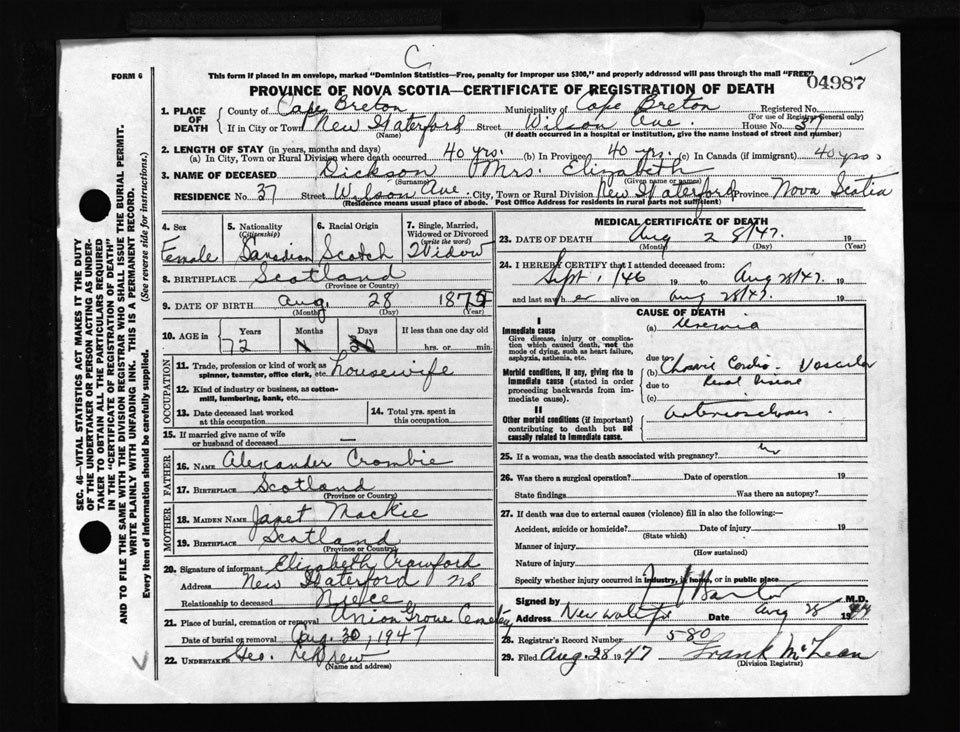 C
FORM 6
This form if placed in an envelope, marked "Dominion Statistics—Free, penalty for improper use $300," and properly addressed will pass through the mail "FREE"
04987
PROVINCE OF NOVA SCOTIA—CERTIFICATE OF REGISTRATION OF DEATH
1. PLACE OF DEATH
County of Cape Breton Municipality of Cape Breton Registered No.
(For use of Registrar General only)
If in City or Town New Waterford Street Wilson Ave. House No. 37
(Name) (If death occurred in a hospital or institution, give the name instead of street and number)
2. LENGTH OF STAY (in years, months and days)
(a) In City, Town or Rural Division where death occurred 40 yrs. (b) In Province 40 yrs. (c) In Canada (if immigrant) 40 yrs.
3. NAME OF DECEASED Dickson Mrs. Elizabeth
(Surname) (Given name or names)
RESIDENCE No. 37 Street Wilson Ave City, Town or Rural Division New Waterford Province Nova Scotia
(Residence means usual place of abode. Post Office Address for residents in rural parts not sufficient)
4. Sex
Female
5. Nationality
(Citizenship)
Canadian
6. Racial Origin
Scotch
7. Single, Married, Widowed or Divorced
(write the word)
Widow
8. BIRTHPLACE Scotland
(Province or Country)
9. DATE OF BIRTH Aug. 28 1875
(Month) (Day) (Year)
10. AGE in
Years Months Days If less than one day old
72 hrs. or min.
OCCUPATION
11. Trade, profession or kind of work as spinner, teamster, office clerk, etc. housewife
12. Kind of industry or business, as cotton-mill, lumbering, bank, etc.
13. Date deceased last worked at this occupation
14. Total yrs. spent in this occupation
15. If married give name of wife or husband of deceased —
FATHER
16. NAME Alexander Crombie
17. BIRTHPLACE Scotland
(Province or Country)
MOTHER
18. MAIDEN NAME Janet Mackie
19. BIRTHPLACE Scotland
(Province or Country)
20. Signature of informant Elizabeth Crawford
Address New Waterford NS
Relationship to deceased Niece
21. Place of burial, cremation or removal Union Grove Cemetery
Date of burial or removal Aug. 30, 1947
22. UNDERTAKER Geo.
(Name and address)
MEDICAL CERTIFICATE OF DEATH
23. DATE OF DEATH Aug 28/47. 19
(Month) (Day) (Year)
24. I HEREBY CERTIFY that I attended deceased from:
Sept 1/46 19 to Aug 28/47. 19
and last saw her alive on Aug 28/47. 19
CAUSE OF DEATH
I
Immediate cause
Give disease, injury or complication which caused death, not the mode of dying, such as heart failure, asphyxia, asthenia, etc.
(a) Uremia
due to
Morbid conditions, if any, giving rise to immediate cause (stated in order proceeding backwards from immediate cause).
(b) Chronic Cardio-Vascular
due to Renal Disease
(c)
II
Other morbid conditions (if important) contributing to death but not causally related to immediate cause.
arteriosclerosis
25. If a woman, was the death associated with pregnancy? no
26. Was there a surgical operation? Date of operation 19
State findings Was there an autopsy?
27. If death was due to external causes (violence) fill in also the following:—
Accident, suicide or homicide? Date of injury 19
(State which)
Manner of injury
(How sustained)
Nature of injury
Specify whether injury occurred in industry, in home, or in public place
Signed by M.D.
Address New Waterf. Date Aug 28 1947
28. Registrar's Record Number 580
29. Filed Aug. 28 1947 Frank McLean
(Division Registrar)
SEC. 46—VITAL STATISTICS ACT MAKES IT THE DUTY OF THE UNDERTAKER OR PERSON ACTING AS UNDERTAKER TO OBTAIN ALL THE PARTICULARS REQUIRED IN THE "CERTIFICATE OF REGISTRATION OF DEATH" AND TO FILE THE SAME WITH THE DIVISION REGISTRAR WHO SHALL ISSUE THE BURIAL PERMIT.
WRITE PLAINLY WITH UNFADING INK. THIS IS A PERMANENT RECORD.
Every item of information should be carefully supplied. (See reverse side for instructions.)